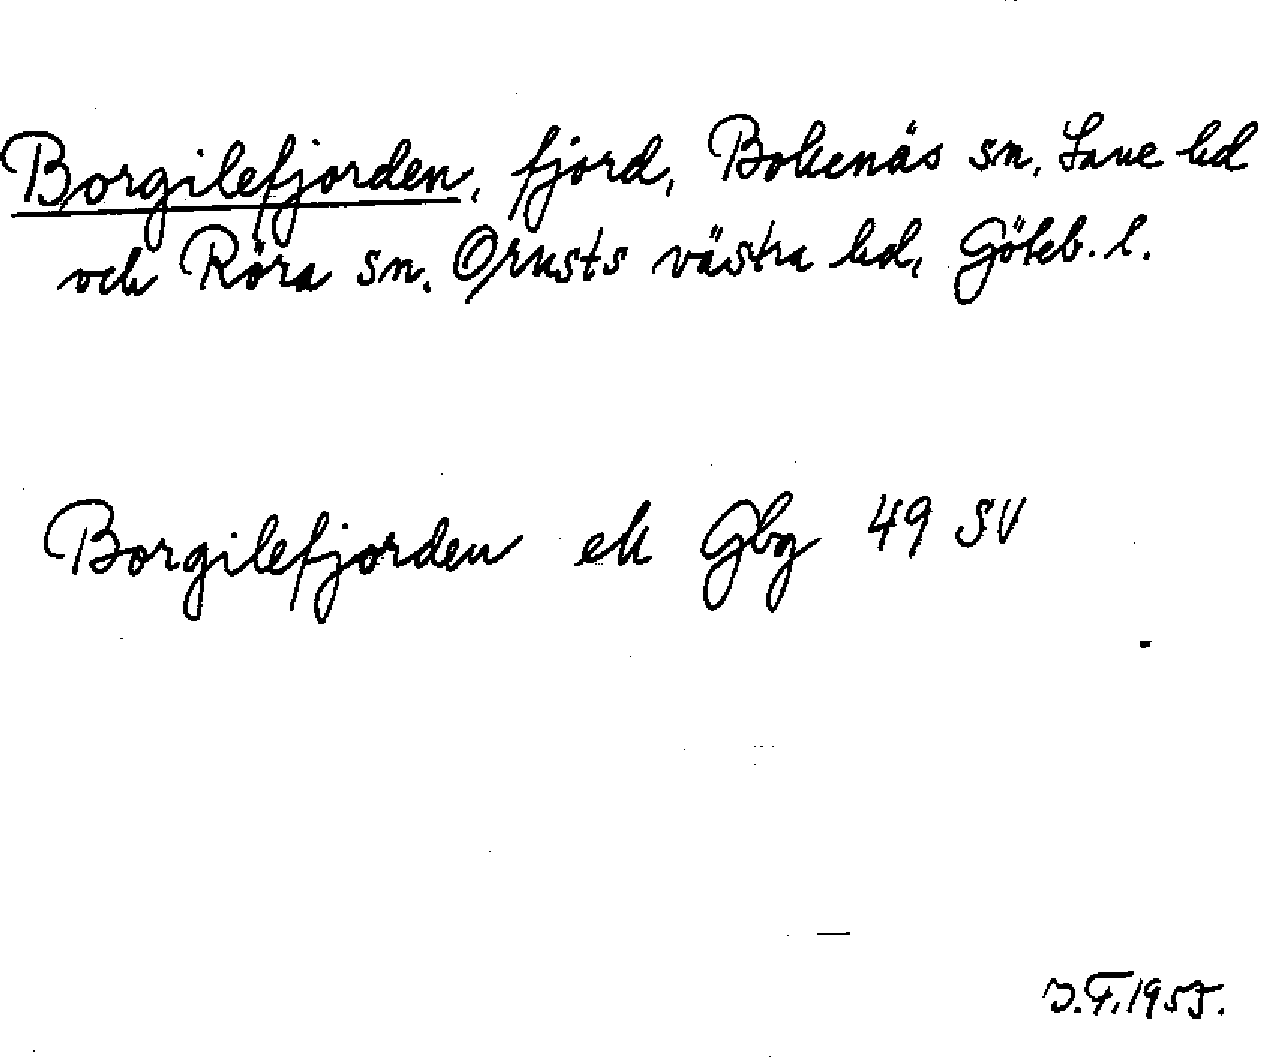 Borgilefjorden, fjord, Bokenäs sn, Lane hd
och Röra sn, Orusts västra hd, Göteb. l.
Borgilefjorden ek Gbg 49 SV
J.F. 1955.